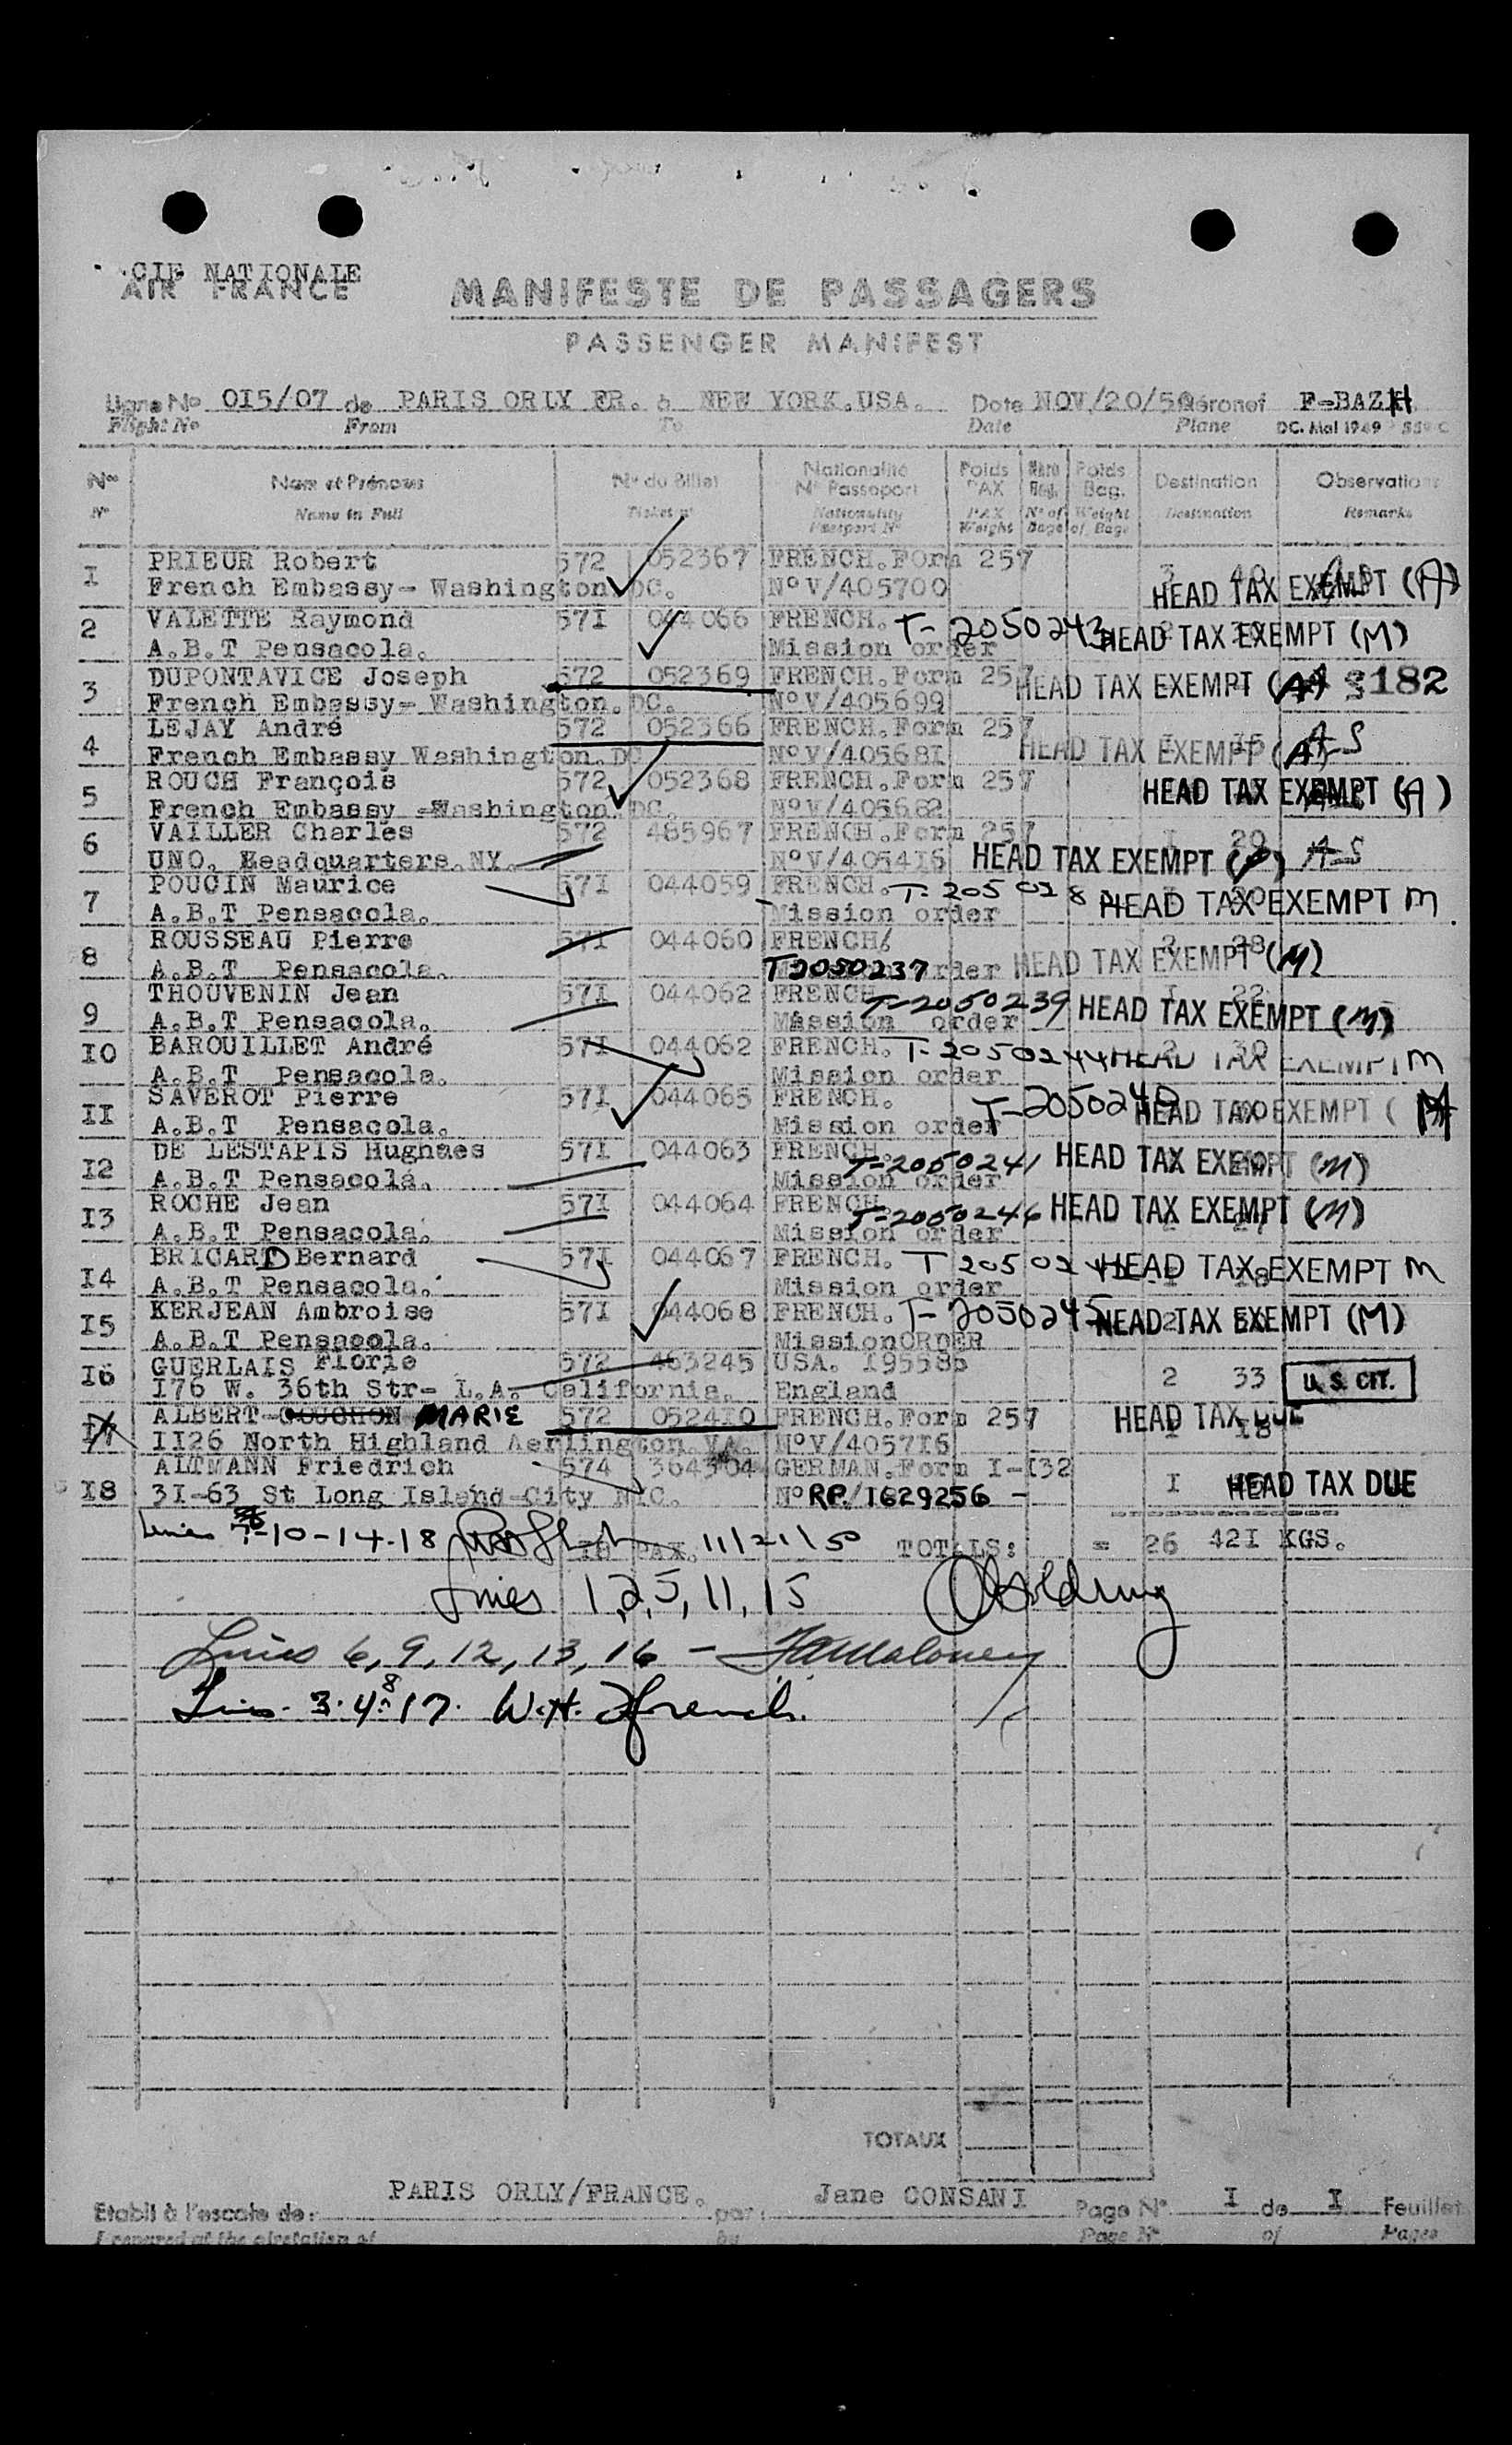 CIE NATIONALE
AIR FRANCE
MANIFESTE DE PASSAGERS
PASSENGER MANIFEST
Ligne No 0I5/07 de PARIS ORLY FR. à NEW YORK.USA. Date NOV/20/50 Aéronef F-BAZH
Flight No From To Date Plane DC. Mai 1949
Nos Nom et Prénoms No du Billet Nationalité No Passeport Poids PAX Nbre Bag. Poids Bag. Destination Observations
No Name in Full Ticket no Nationality Passport No PAX Weight No of Bags Weight of Bags Destination Remarks
I PRIEUR Robert 572 052367 FRENCH.FOrm 257
French Embassy- Washington DC. NoV/405700 HEAD TAX EXEMPT (A)
2 VALETTE Raymond 57I 044066 FRENCH. T-2050243 HEAD TAX EXEMPT (M)
A.B.T Pensacola. Mission order
3 DUPONTAVICE Joseph 572 052369 FRENCH.Form 257 HEAD TAX EXEMPT (A) 182
French Embassy- Washington.DC. NoV/405699
4 LEJAY André 572 052366 FRENCH.Form 257
French Embassy Washington.DC NoV/40568I HEAD TAX EXEMPT (A)
5 ROUCH François 572 052368 FRENCH.Form 257 HEAD TAX EXEMPT (A)
French Embassy -Washington.DC. NoV/405682
6 VAILLER Charles 572 485967 FRENCH.Form 257 I 29
UNO. Headquarters.NY. NoV/4054I6 HEAD TAX EXEMPT
7 POUCIN Maurice 57I 044059 FRENCH. HEAD TAX EXEMPT M
A.B.T Pensacola. Mission order
8 ROUSSEAU Pierre 57I 044060 FRENCH.
A.B.T Pensacola. T2050237 order HEAD TAX EXEMPT (M)
9 THOUVENIN Jean 57I 044062 FRENCH. T-2050239 HEAD TAX EXEMPT (M)
A.B.T Pensacola. Mission order
IO BAROUILLET André 57I 044062 FRENCH. T-2050244 HEAD TAX EXEMPT M
A.B.T Pensacola. Mission order
II SAVEROT Pierre 57I 044065 FRENCH. T-2050240 HEAD TAX EXEMPT (
A.B.T Pensacola. Mission order
I2 DE LESTAPIS Hughaes 57I 044063 FRENCH. T-2050241 HEAD TAX EXEMPT (M)
A.B.T Pensacola. Mission order
I3 ROCHE Jean 57I 044064 FRENCH. T-2050246 HEAD TAX EXEMPT (M)
A.B.T Pensacola. Mission order
I4 BRICARD Bernard 57I 044067 FRENCH. HEAD TAX EXEMPT M
A.B.T Pensacola. Mission order
I5 KERJEAN Ambroise 57I 044068 FRENCH. T-2050245 HEAD TAX EXEMPT (M)
A.B.T Pensacola. MissionORDER
I6 GUERLAIS Florie 572 463245 USA. 2 33 U.S. CIT.
I76 W. 36th Str- L.A. California. England
I7 ALBERT COUCHON MARIE 572 0524I0 FRENCH.Form 257 HEAD TAX DUE
II26 North Highland Aerlington.VA. NoV/4057I6 I I8
I8 ALTMANN Friedrich 574 364304 GERMAN.Form I-I32
3I-63 St Long Island-City NYC. No RP/1629256 - I HEAD TAX DUE
Lines 7-10-14-18 I8 PAX. 11/21/50 TOTALS: = 26 42I KGS.
Lines 1,2,5,11,15
Lines 6,9,12,13,16 - Maloney
Lines 3.4.8.17. W.H. French.
TOTAUX
Etabli à l'escale de: PARIS ORLY/FRANCE. par: Jane CONSANI Page No I de I Feuillets
prepared at the by Page No of Pages